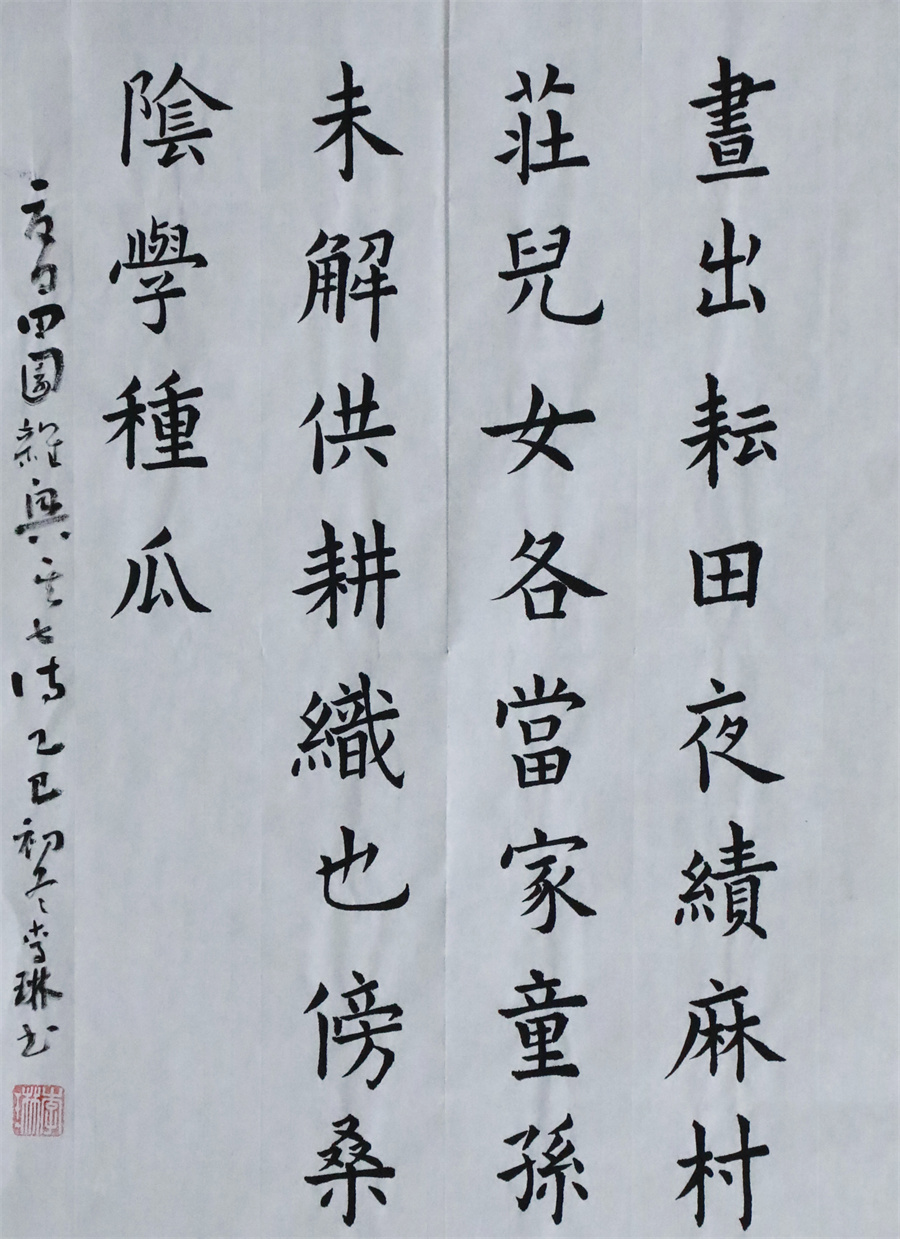 晝出耘田夜績麻村
莊兒女各當家童孫
未解供耕織也傍桑
陰學種瓜
夏日田園雜興其七詩乙巳初冬李琳书
李琳